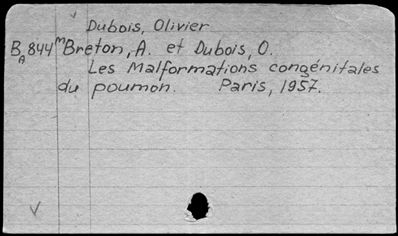 Dubois, Olivier
BA 844m Breton, A. et Dubois, O.
Les Malformations congénitales
du poumon. Paris, 1957.